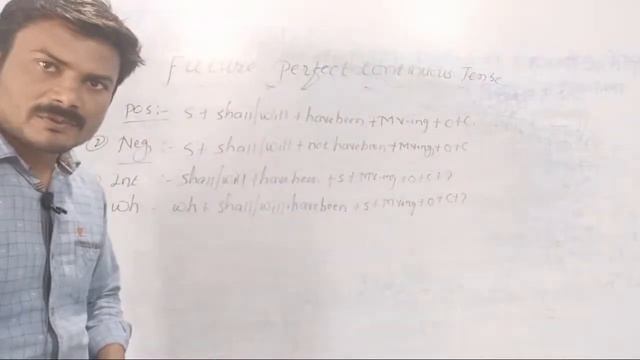 Future perfect continuous Tense
Pos:- S + shall/will + have been + MV-ing + O+C.
② Neg :- S + shall/will + not have been + MV-ing + O+C
Int :- shall/will + have been + S + MV-ing + O + C + ?
Wh - wh + shall/will + have been + S + MV-ing + O + C + ?